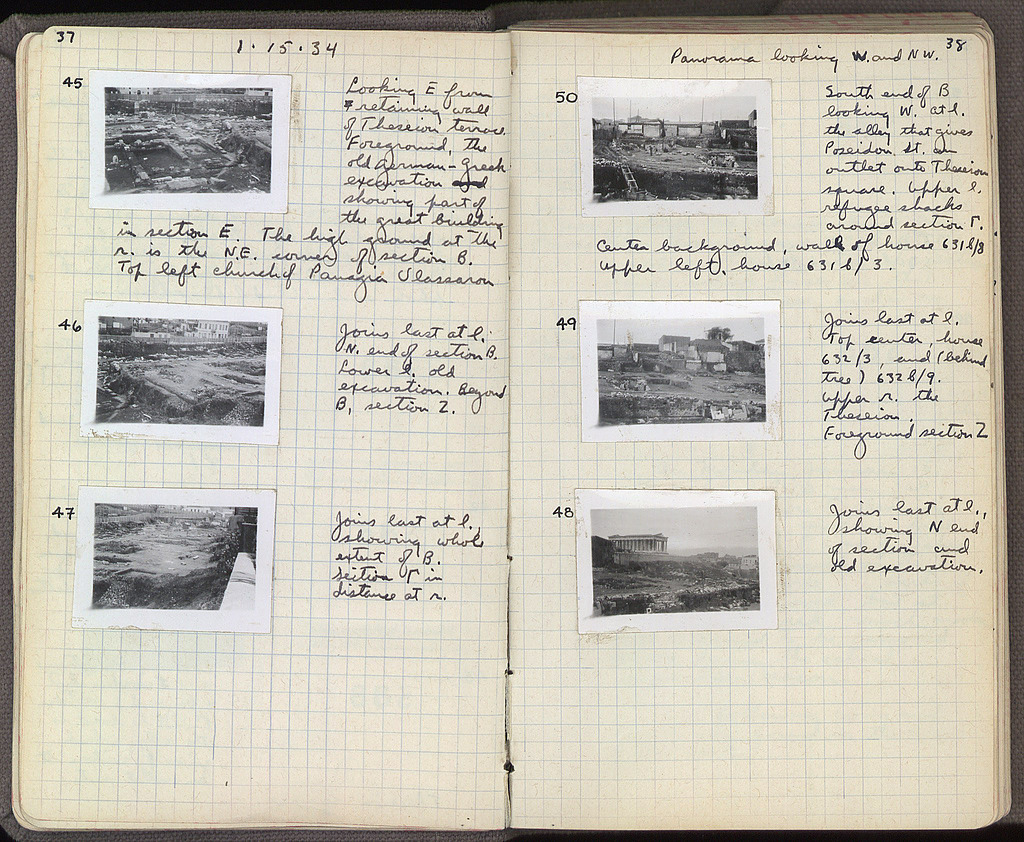 37
1·15·34
45
Looking E from
retaining wall
of Theseion terrace.
Foreground, the
old German-Greek
excavation
showing part of
the great building
in section E. The high ground at the
r. is the N.E. corner of section B.
Top left church of Panagia Vlassarou
46
Joins last at l.
N. end of section B.
Lower l. old
excavation. Beyond
B, section Z.
47
Joins last at l.,
showing whole
extent of B.
Section Γ in
distance at r.
38
Panorama looking W. and NW.
50
South end of B
looking W. at l.
the alley that gives
Poseidon St. an
outlet onto Theseion
square. Upper l.
refugee shacks
around section Γ.
Center background, wall of house 631b/8
Upper left, house 631b/3.
49
Joins last at l.
Top center, house
632/3, and (behind
tree) 632b/9.
Upper r. the
Theseion.
Foreground section Z
48
Joins last at l.,
showing N end
of section and
old excavation.